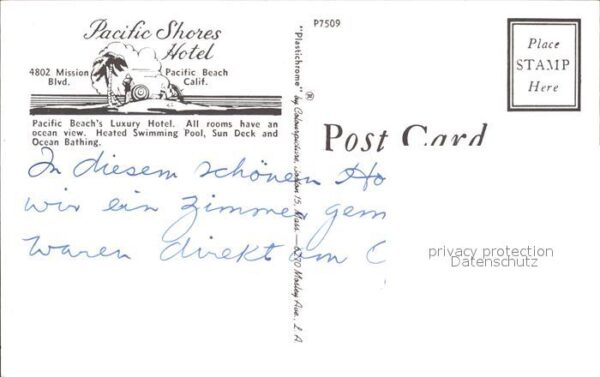 Pacific Shores
Hotel
4802 Mission Blvd.
Pacific Beach Calif.
Pacific Beach's Luxury Hotel. All rooms have an
ocean view. Heated Swimming Pool, Sun Deck and
Ocean Bathing.
In diesem schönen Ho
wir ein Zimmer gem
waren direkt am O
P7509
"Plastichrome" ® by Colourpicture, Boston 15, Mass. — 6270 Mosley Ave., L. A.
Post Card
Place
STAMP
Here
privacy protection
Datenschutz